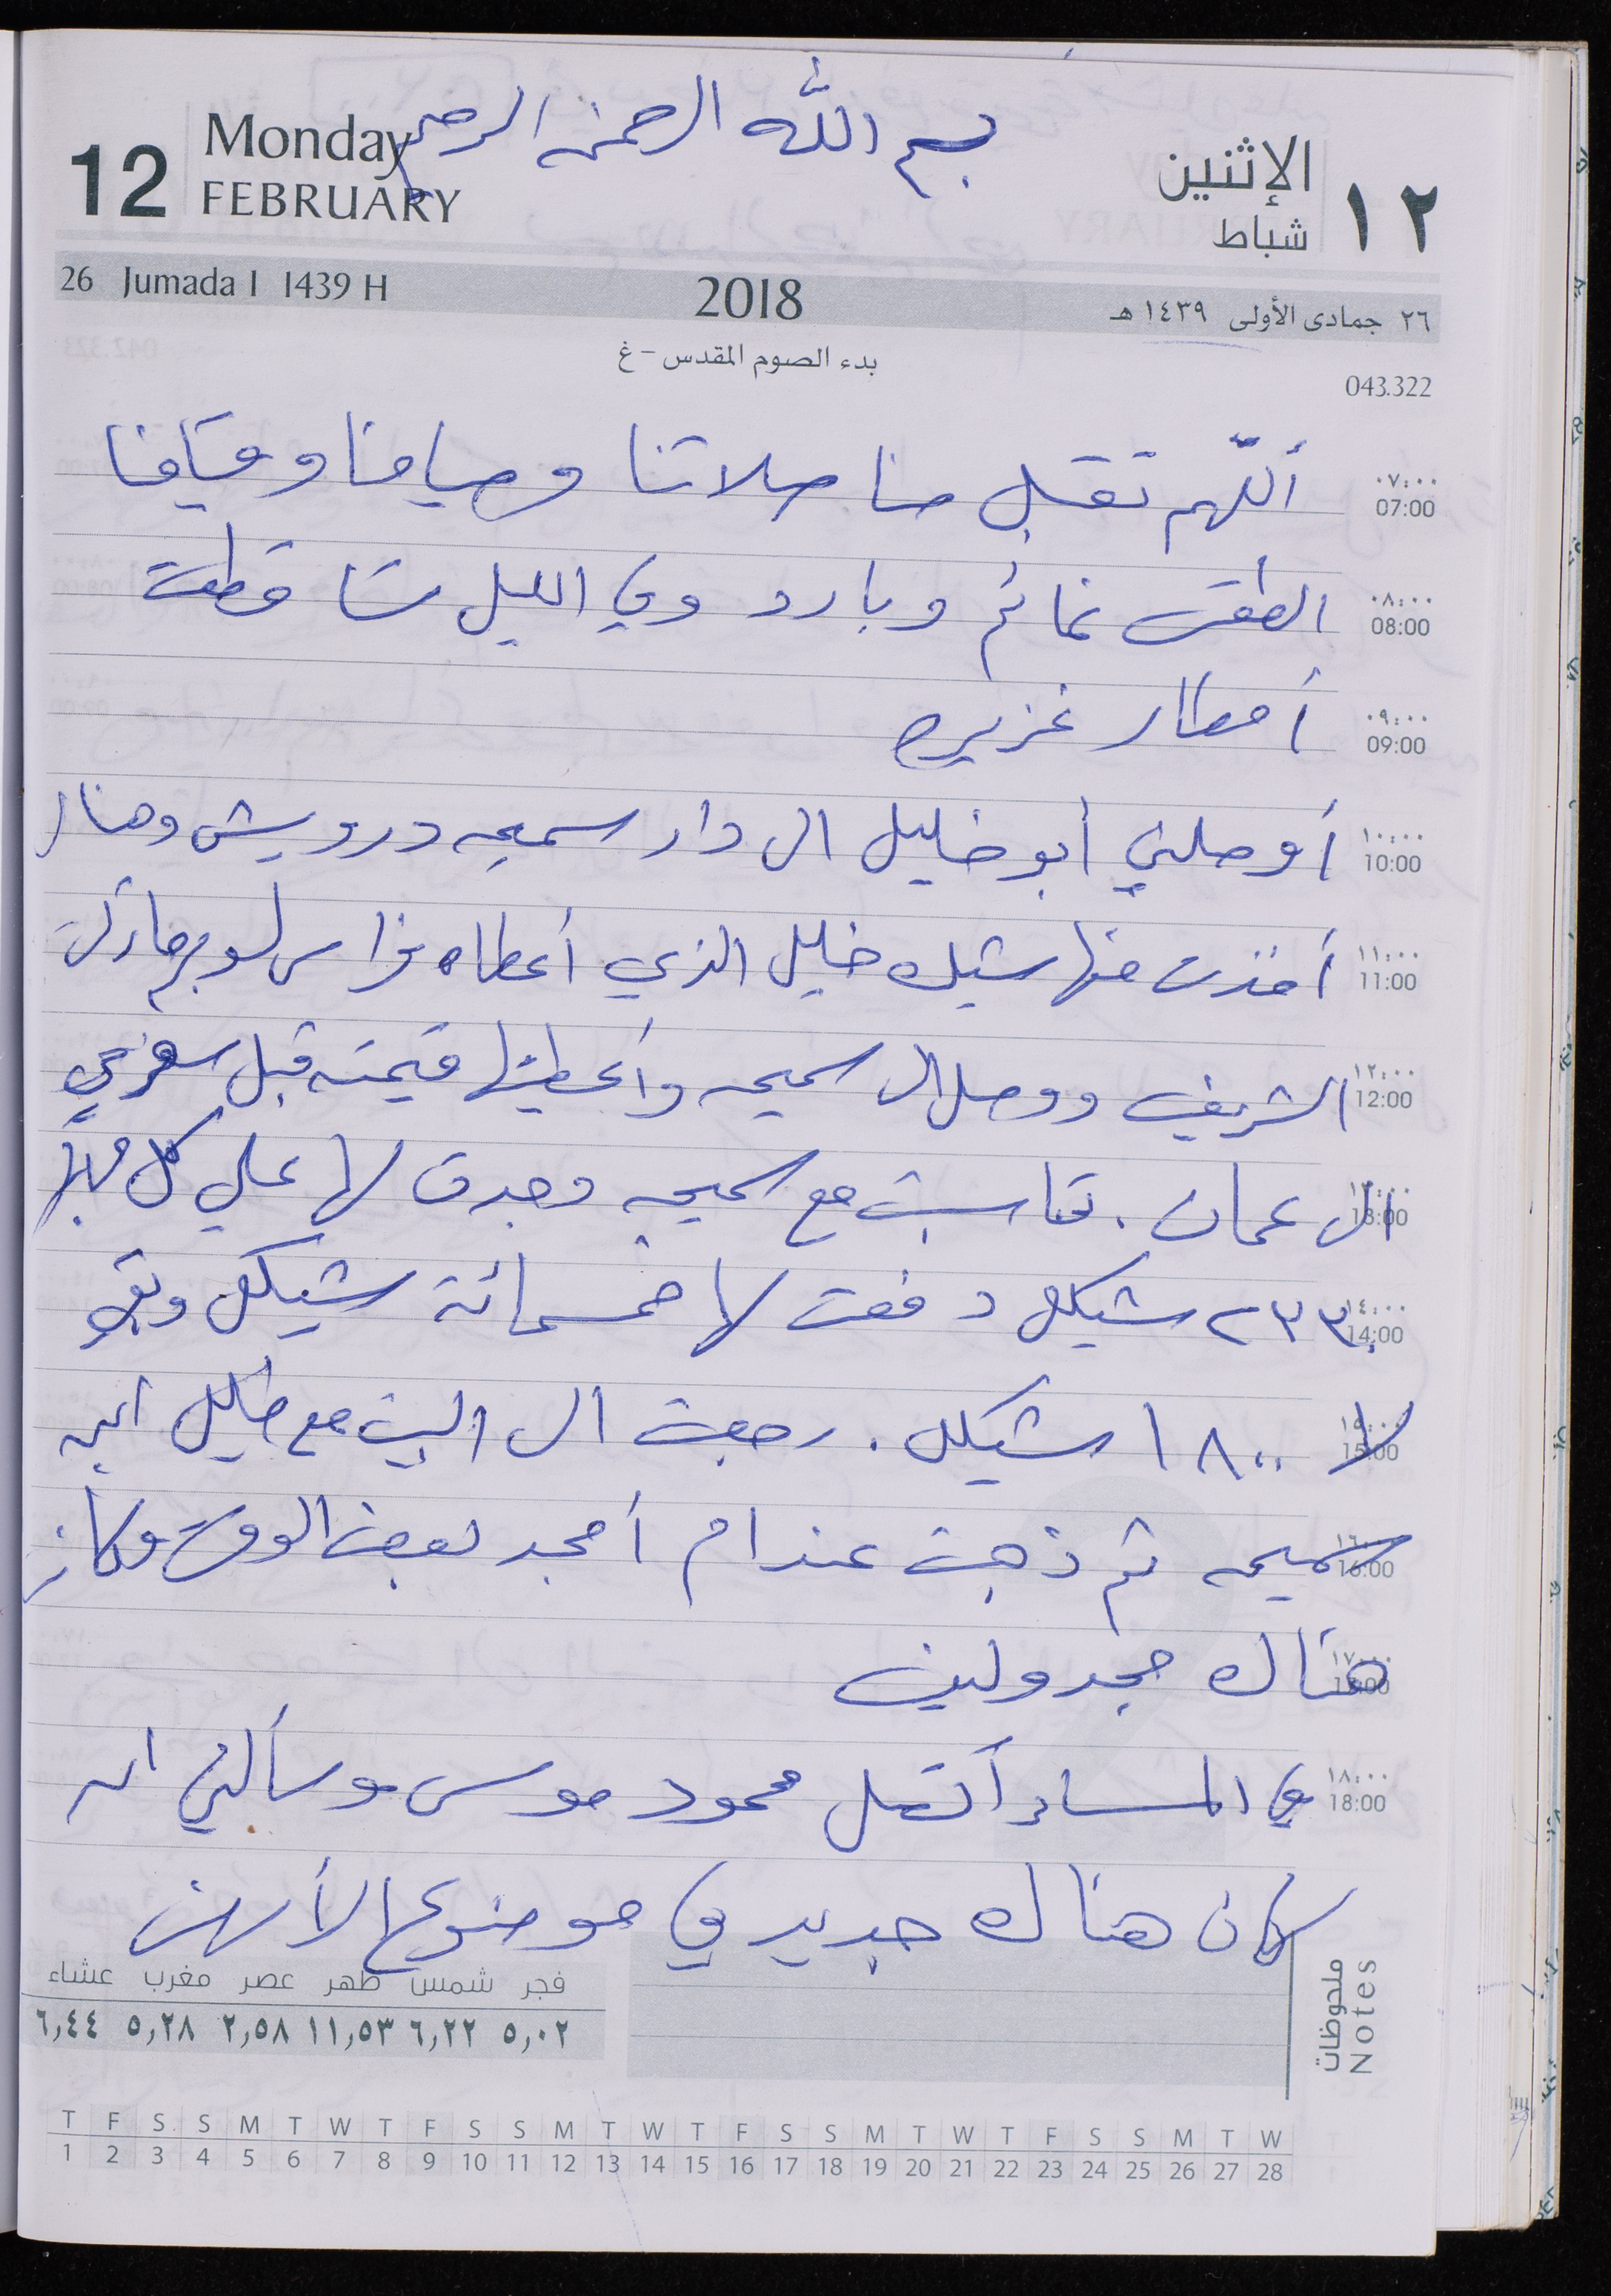 بسم الله الرحمن الرحيم
12 Monday FEBRUARY
الإثنين شباط ١٢
26 Jumada I 1439 H 2018 ٢٦ جمادى الأولى ١٤٣٩ هـ
بدء الصوم المقدس - غ
043.322
٠٧:٠٠ 07:00 أللهم تقبل منا صلاتنا وصيامنا وقيامنا
٠٨:٠٠ 08:00 الطقس غائم وبارد وفي الليل تساقطت
٠٩:٠٠ 09:00 أمطار غزيره
١٠:٠٠ 10:00 أوصلني أبو خليل الى دار سميحه درويش وهناك
١١:٠٠ 11:00 أخذت منها شيك خليل الذي أعطاه فراس لسوبرماركت
١٢:٠٠ 12:00 الشريف ووصل الى سميحه وأعطيتها قيمته قبل سفري
١٣:٠٠ 13:00 الى عمان . تحاسبت مع سميحه وجدت لها علي كل مبلغ
١٤:٠٠ 14:00 ٢٣٣٠ شيكل دفعت لها خمسمائة شيكل وبقي
١٥:٠٠ 15:00 لها ١٨٠٠ شيكل . رجعت الى البيت مع خليل ابن
١٦:٠٠ 16:00 سميحه ثم ذهبت عند ام أمجد لبعض الوقت وكان
١٧:٠٠ 17:00 هناك مجدولين
١٨:٠٠ 18:00 في المساء أتصل محمود موسى وسألني ان
كان هناك جديد في موضوع الأرض
ملحوظات Notes
فجر شمس ظهر عصر مغرب عشاء
٥,٠٢ ٦,٢٢ ١١,٥٣ ٢,٥٨ ٥,٢٨ ٦,٤٤
T F S S M T W T F S S M T W T F S S M T W T F S S M T W
1 2 3 4 5 6 7 8 9 10 11 12 13 14 15 16 17 18 19 20 21 22 23 24 25 26 27 28